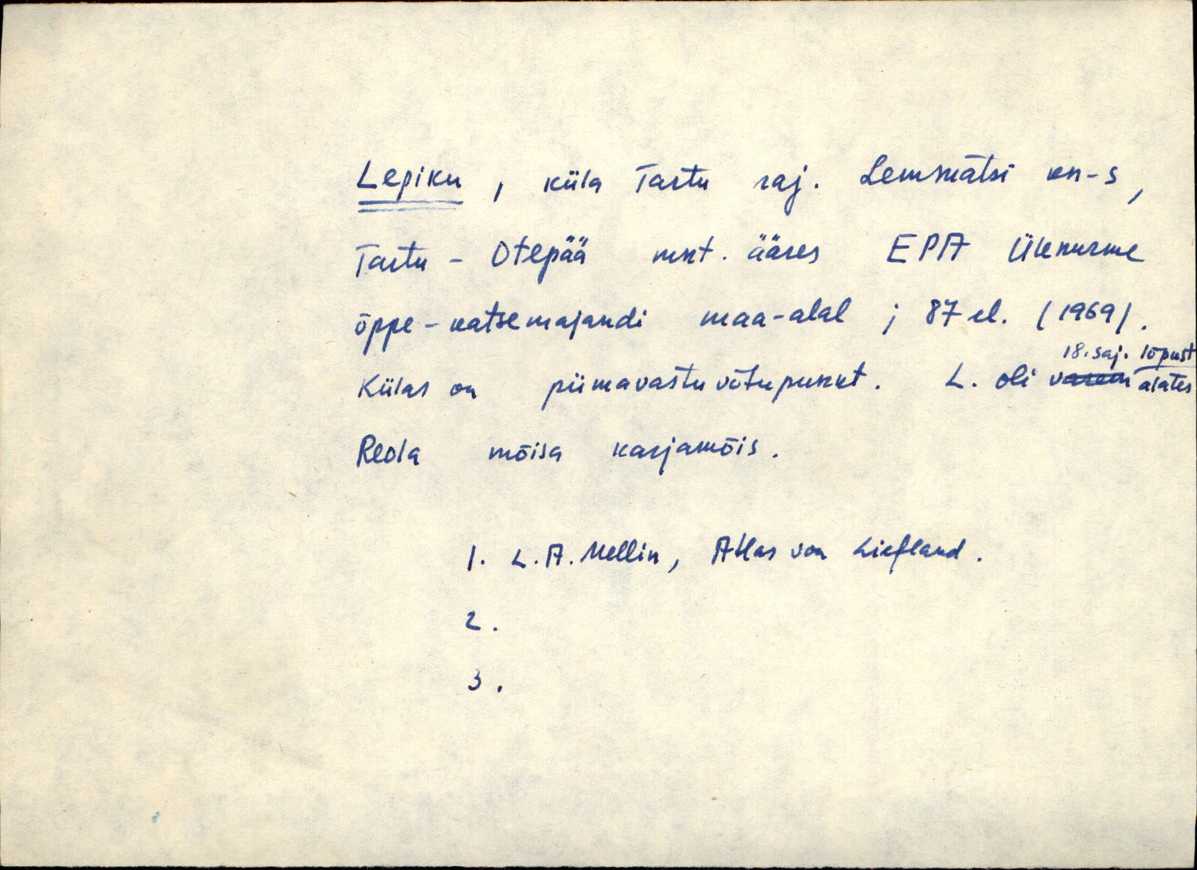 Lepiku, küla Tartu raj. Lemmätsi kn-s,
Tartu - Otepää mnt. ääres EPA Ülenurme
õppe-katsemajandi maa-alal; 87 el. (1969).
18. saj. lõpust
Külas on piimavastuvõtupunkt. L. oli varem alates
Reola mõisa karjamõis.
1. L.A. Mellin, Atlas von Liefland.
2.
3.